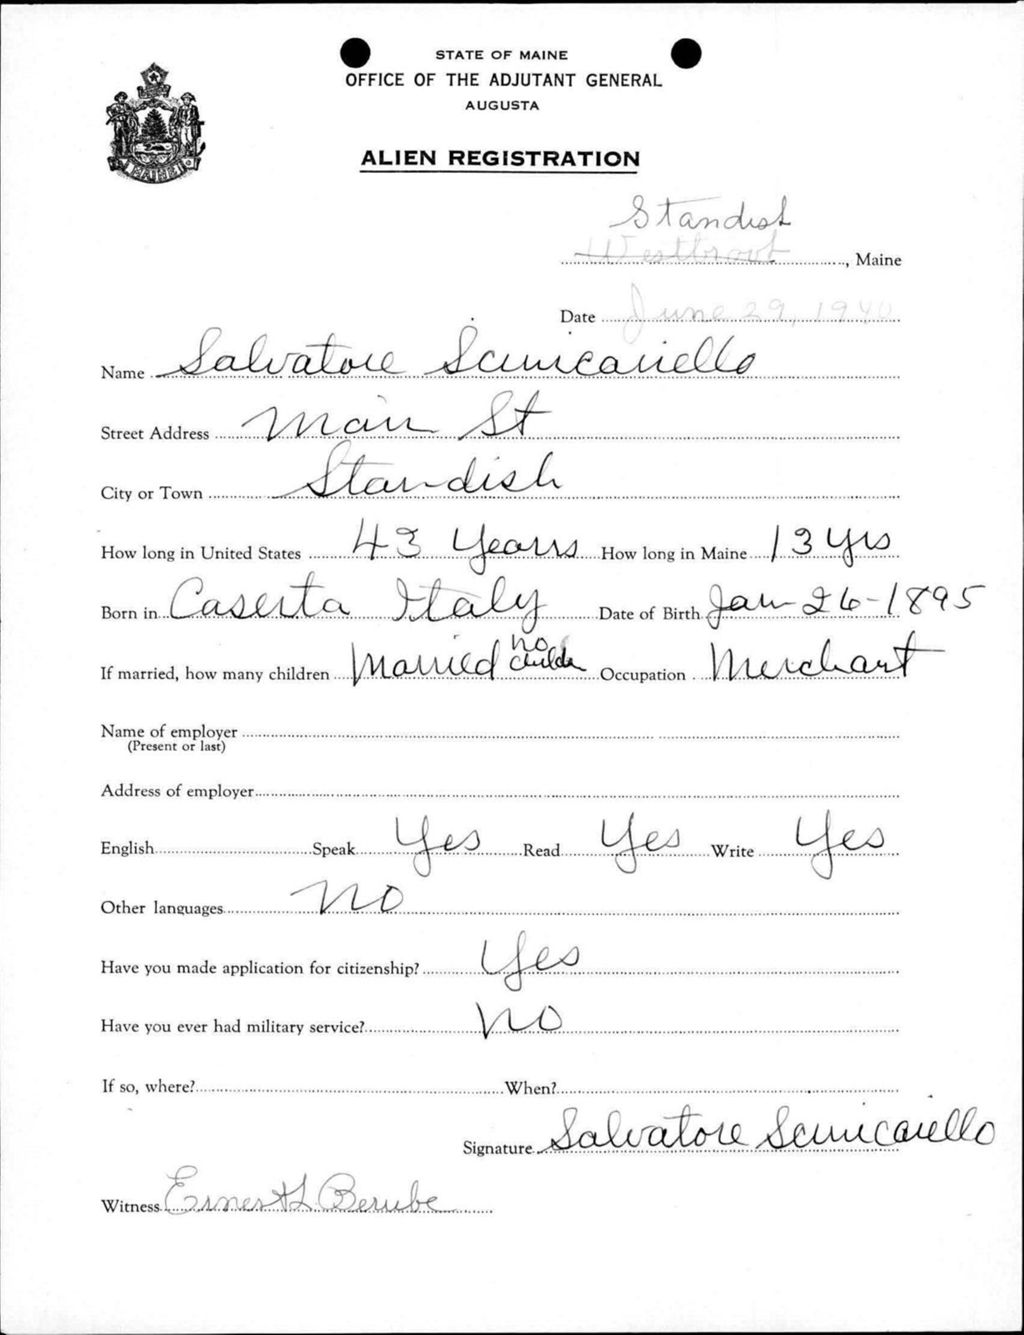 STATE OF MAINE
OFFICE OF THE ADJUTANT GENERAL
AUGUSTA
ALIEN REGISTRATION
Standish
Westbrook, Maine
Date June 29, 1940
Name Salvatore
Street Address Main St
City or Town Standish
How long in United States 43 Years How long in Maine 13 yrs
Born in Caserta Italy Date of Birth Jan 26-1895
If married, how many children Married no Occupation Merchant
Name of employer
(Present or last)
Address of employer
English Speak Yes Read Yes Write Yes
Other languages No
Have you made application for citizenship? Yes
Have you ever had military service? No
If so, where? When?
Signature Salvatore
Witness Ernest L Berube